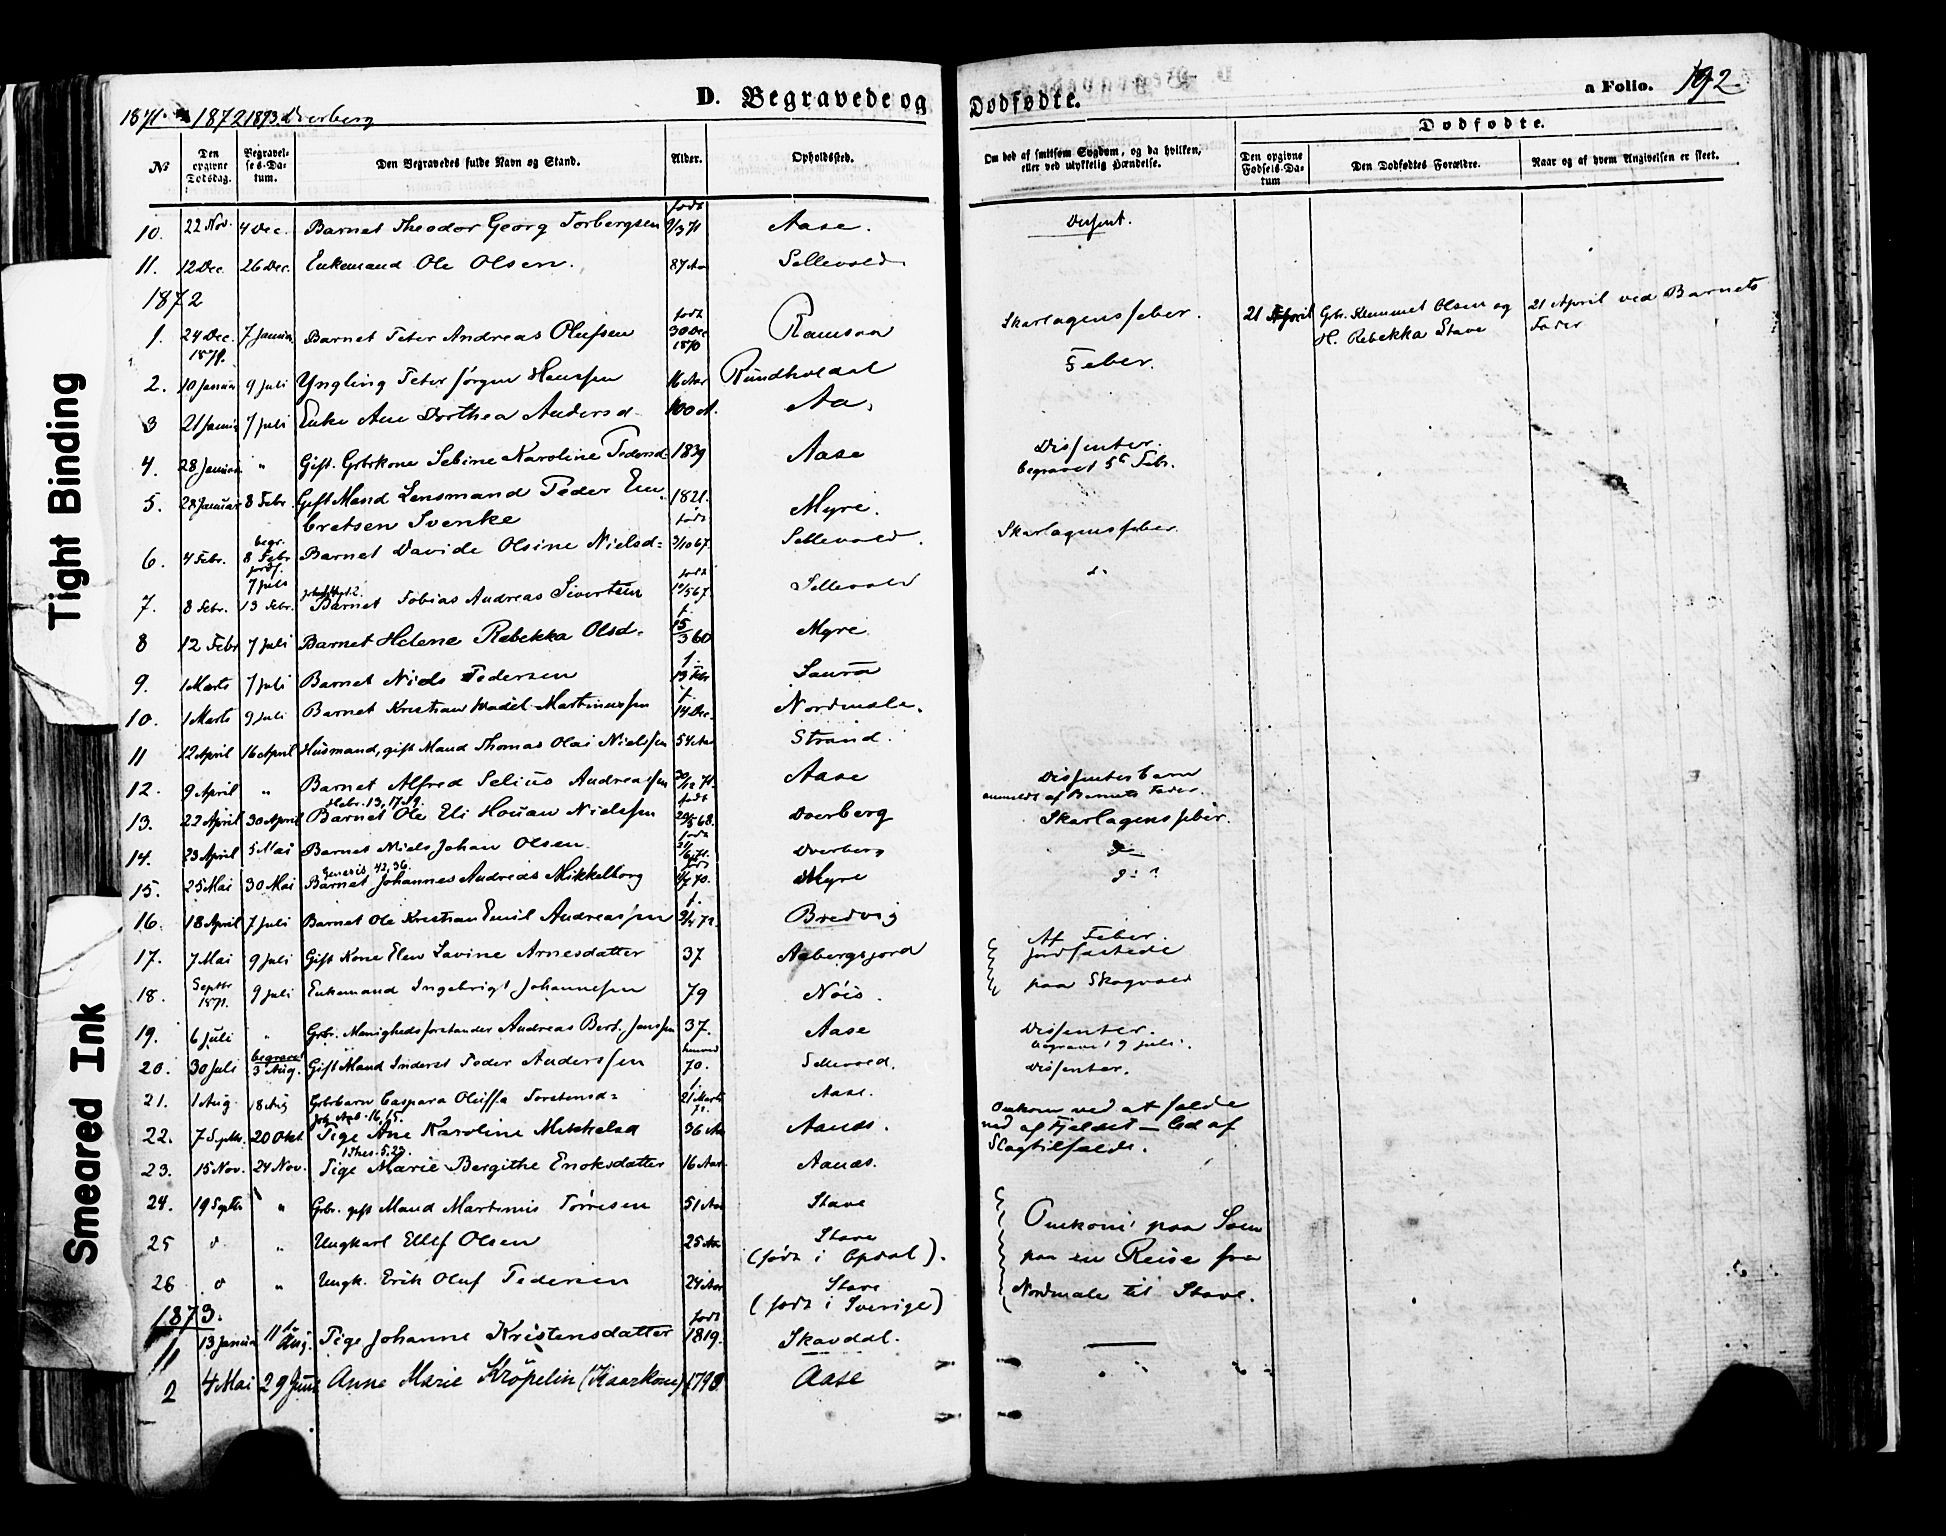 1871. 1872 1873 Dverberg
D. Begravede og Dødfødte.
a Folio. 192
Dødfødte.
No
Den opgivne Dødsdag.
Begravelses-Datum.
Den Begravedes fulde Navn og Stand.
Alder.
Opholdssted.
Om død af smitsom Sygdom, og da hvilken, eller ved ulykkelig Hændelse.
Den opgivne Fødsels-Datum
Den Dødfødtes Forældre.
Naar og af hvem Angivelsen er skeet.
10. 22 Nov. 4 Dec. Barnet Theodor Georg Torbergsen født 9/3 71 Aase. Dissent.
11. 12 Dec. 26 Dec. Enkemand Ole Olsen. 87 Aar Sellevold
1872
1. 24 Dec. 1871. 7 Januar Barnet Peter Andreas Olufsen født 30 Dec 1870 Ramsaa Skarlagensfeber. 21 April Grb. Klemmet Olsen og H. Rebekka Stave 21 April ved Barnets Fader
2. 10 Januar 9 Juli Yngling Peter Jørgen Hanssen 16 Aar Rundholdal Feber.
3 21 Januar 7 Juli Enke Ane Dorthea Andersd 100 A. Aa.
4. 28 Januar " Gift. Grbrkone Sebine Karoline Pedersd 1839 Aase Dissenter. begravet 5te Febr.
5. 28 Januar 8 Febr. Gift Mand Lensmand Peder Em
bretsen Svenke 1821. Myre.
6. 4 Febr. begr. 8 Febr jordf. 7 Juli Barnet Davide Olsine Nielsd= født 3/10 67. Sellevold. Skarlagensfeber.
7. 8 Febr. 13 Febr. Barnet Tobias Andreas Sivertsen født 10/5 67. Sellevold d.
8 12 Febr 7 Juli Barnet Helene Rebekka Olsd. f. 15/3 60 Myre
9. 1 Marts 7 Juli Barnet Niels Pedersen f. 13 Febr Saura
10. 1 Marts 9 Juli Barnet Kristian Hadel Martinussen f. 14 Dec. Nordmele.
11 12 April 16 April Husmand, gift Mand Thomas Olai Nielssen 54 Aar Strand.
12. 9 April " Barnet Alfred Selius Andreassen 20/12 71. Aase Dissenterbarn anmeldt af Barnets Fader.
Hebr. 13, 17
13. 22 April 30 April Barnet Ole Eli Houan Nielssen født 20/5 68. Dverberg Skarlagensfeber.
14. 23 April 5 Mai Barnet Niels Johan Olsen. født Dverberg d
Genesis. 42, 36.
15. 25 Mai 30 Mai Barnet Johannes Andreas Mikkelborg født Myre d: ?
16. 18 April 7 Juli Barnet Ole Kristian Emil Andreassen f. Bredvig
17. 7 Mai 9 Juli Gift Kone Elen Lavine Arnesdatter 37 Aabergsjord Af Feber. jordfæstede
18. Septbr 1871. 9 Juli Enkemand Ingebrigt Johannesen 79 Nöis. paa Skogvold
19. 6 Juli " Grbr. Menighedsforstander Andreas Bert. Janssen 37. Aase Dissenter. begravet 9 Juli.
20. 30 Juli begravet 3 Aug. Gift Mand Inderst Peder Anderssen 70. Sellevold. Dissenter.
21. 1 Aug. 18 Aug Grbrbarn Caspara Oluffa Torstensd= f. 21 Marts Aase.
Joh. Aab. 16, 15.
22. 7 Septbr. 20 Okt. Pige Ane Karoline Mikkelsd 36 Aar Aands. Omkom ved at falde ned af Fjeldet — død af Slagtilfælde.
1 Thes. 5.23.
23. 15 Nov. 24 Nov. Pige Marie Bergithe Enoksdatter 16 Aar Aanes.
24. 19 Septbr " Grbr. gift Mand Martinus Tørresen 51 Aar Stave Omkom paa Søen
25 d " Ungkarl Ellef Olsen 25 Aar Stave (født i Opdal). paa en Reise fra
26 d " Ungk. Erik Oluf Pedersen 24 Aar Stave (født i Sverige) Nordmele til Stave.
1873.
1 13 Januar 11 Aug. Pige Johanne Kristensdatter født 1819. Skavdal.
2 4 Mai 29 Juni Anna Marie Kröpelin (Kaarkone) Aase
Tight Binding
Smeared Ink